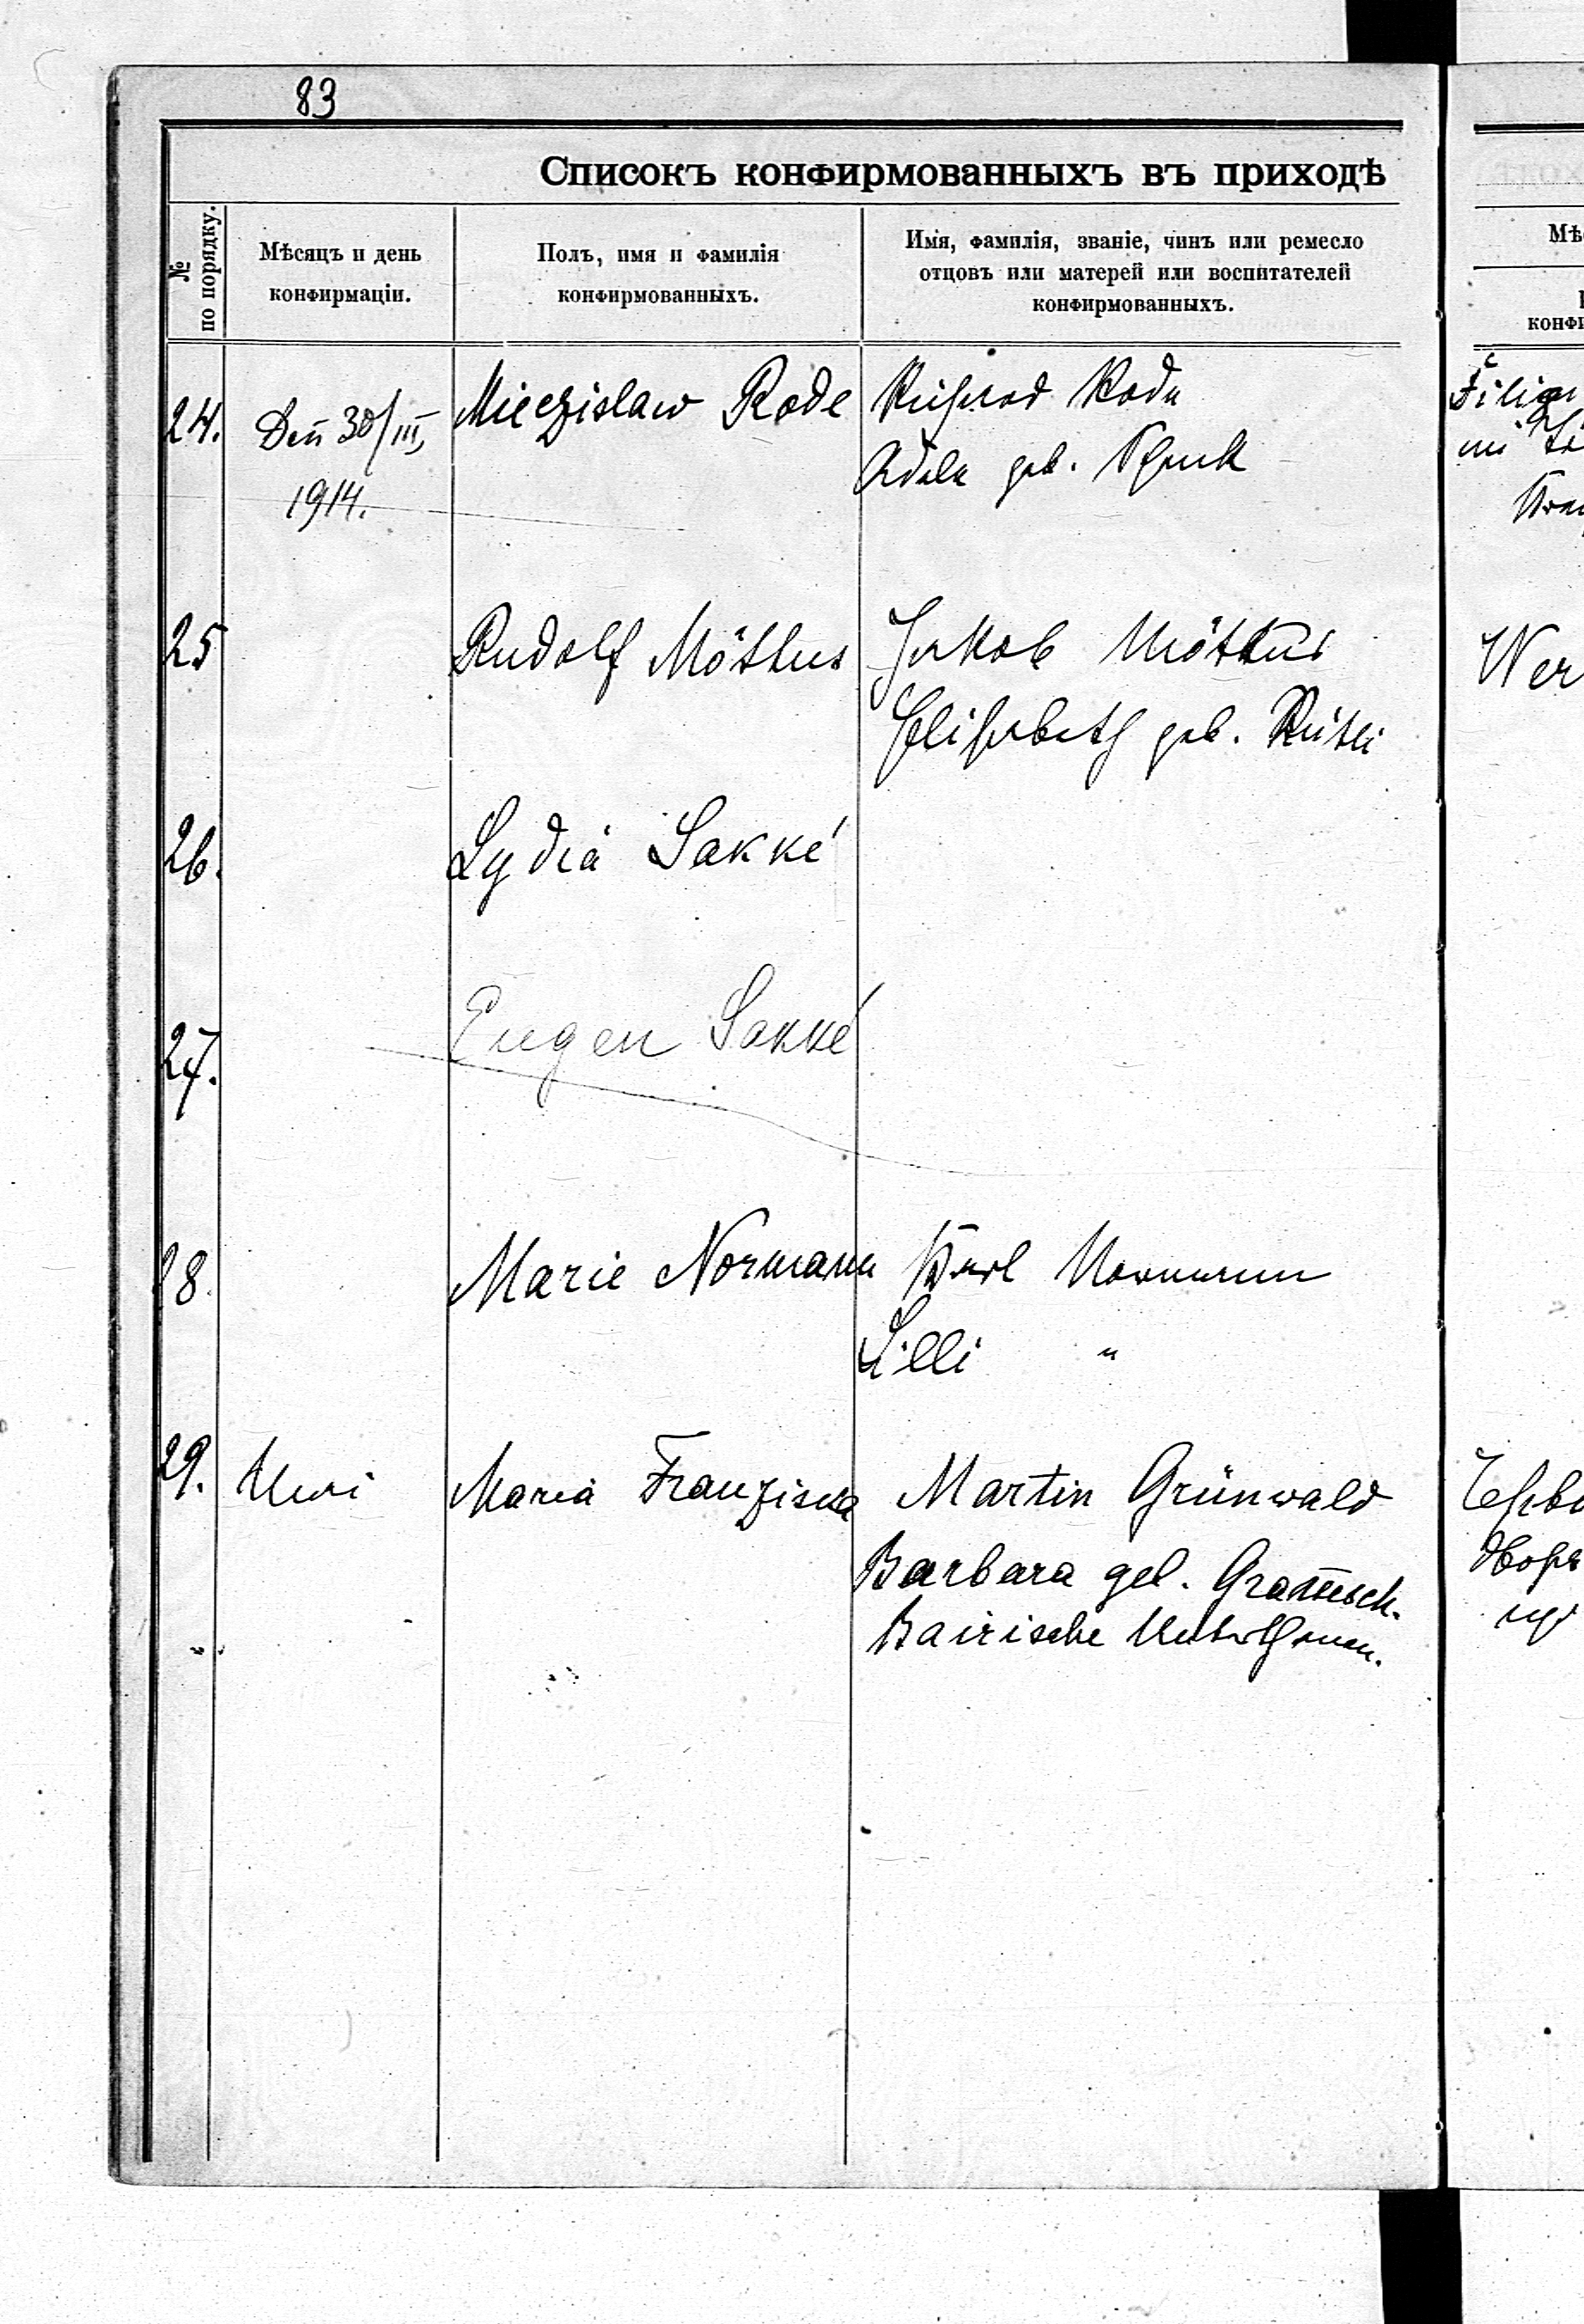 83
Списокъ конфирмованныхъ въ приходѣ
№ по порядку.
Мѣсяцъ и день
конфирмаціи.
Полъ, имя и фамилія
конфирмованныхъ.
Имя, фамилія, званіе, чинъ или ремесло
отцовъ или матерей или воспитателей
конфирмованныхъ.
24. Den 30/III, Mieczislaw Rode Richard Rode
1914. Adele geb.
25 Rudolf Möttus Jakob Möttus
Elisabeth geb.
26. Lydia Sakké
27. Eugen Sakké
28. Marie Normann Karl Normann
Lilli "
29. Maria Franziska Martin Grünwald
Barbara geb.
Bairische Unterthanen.
Wer